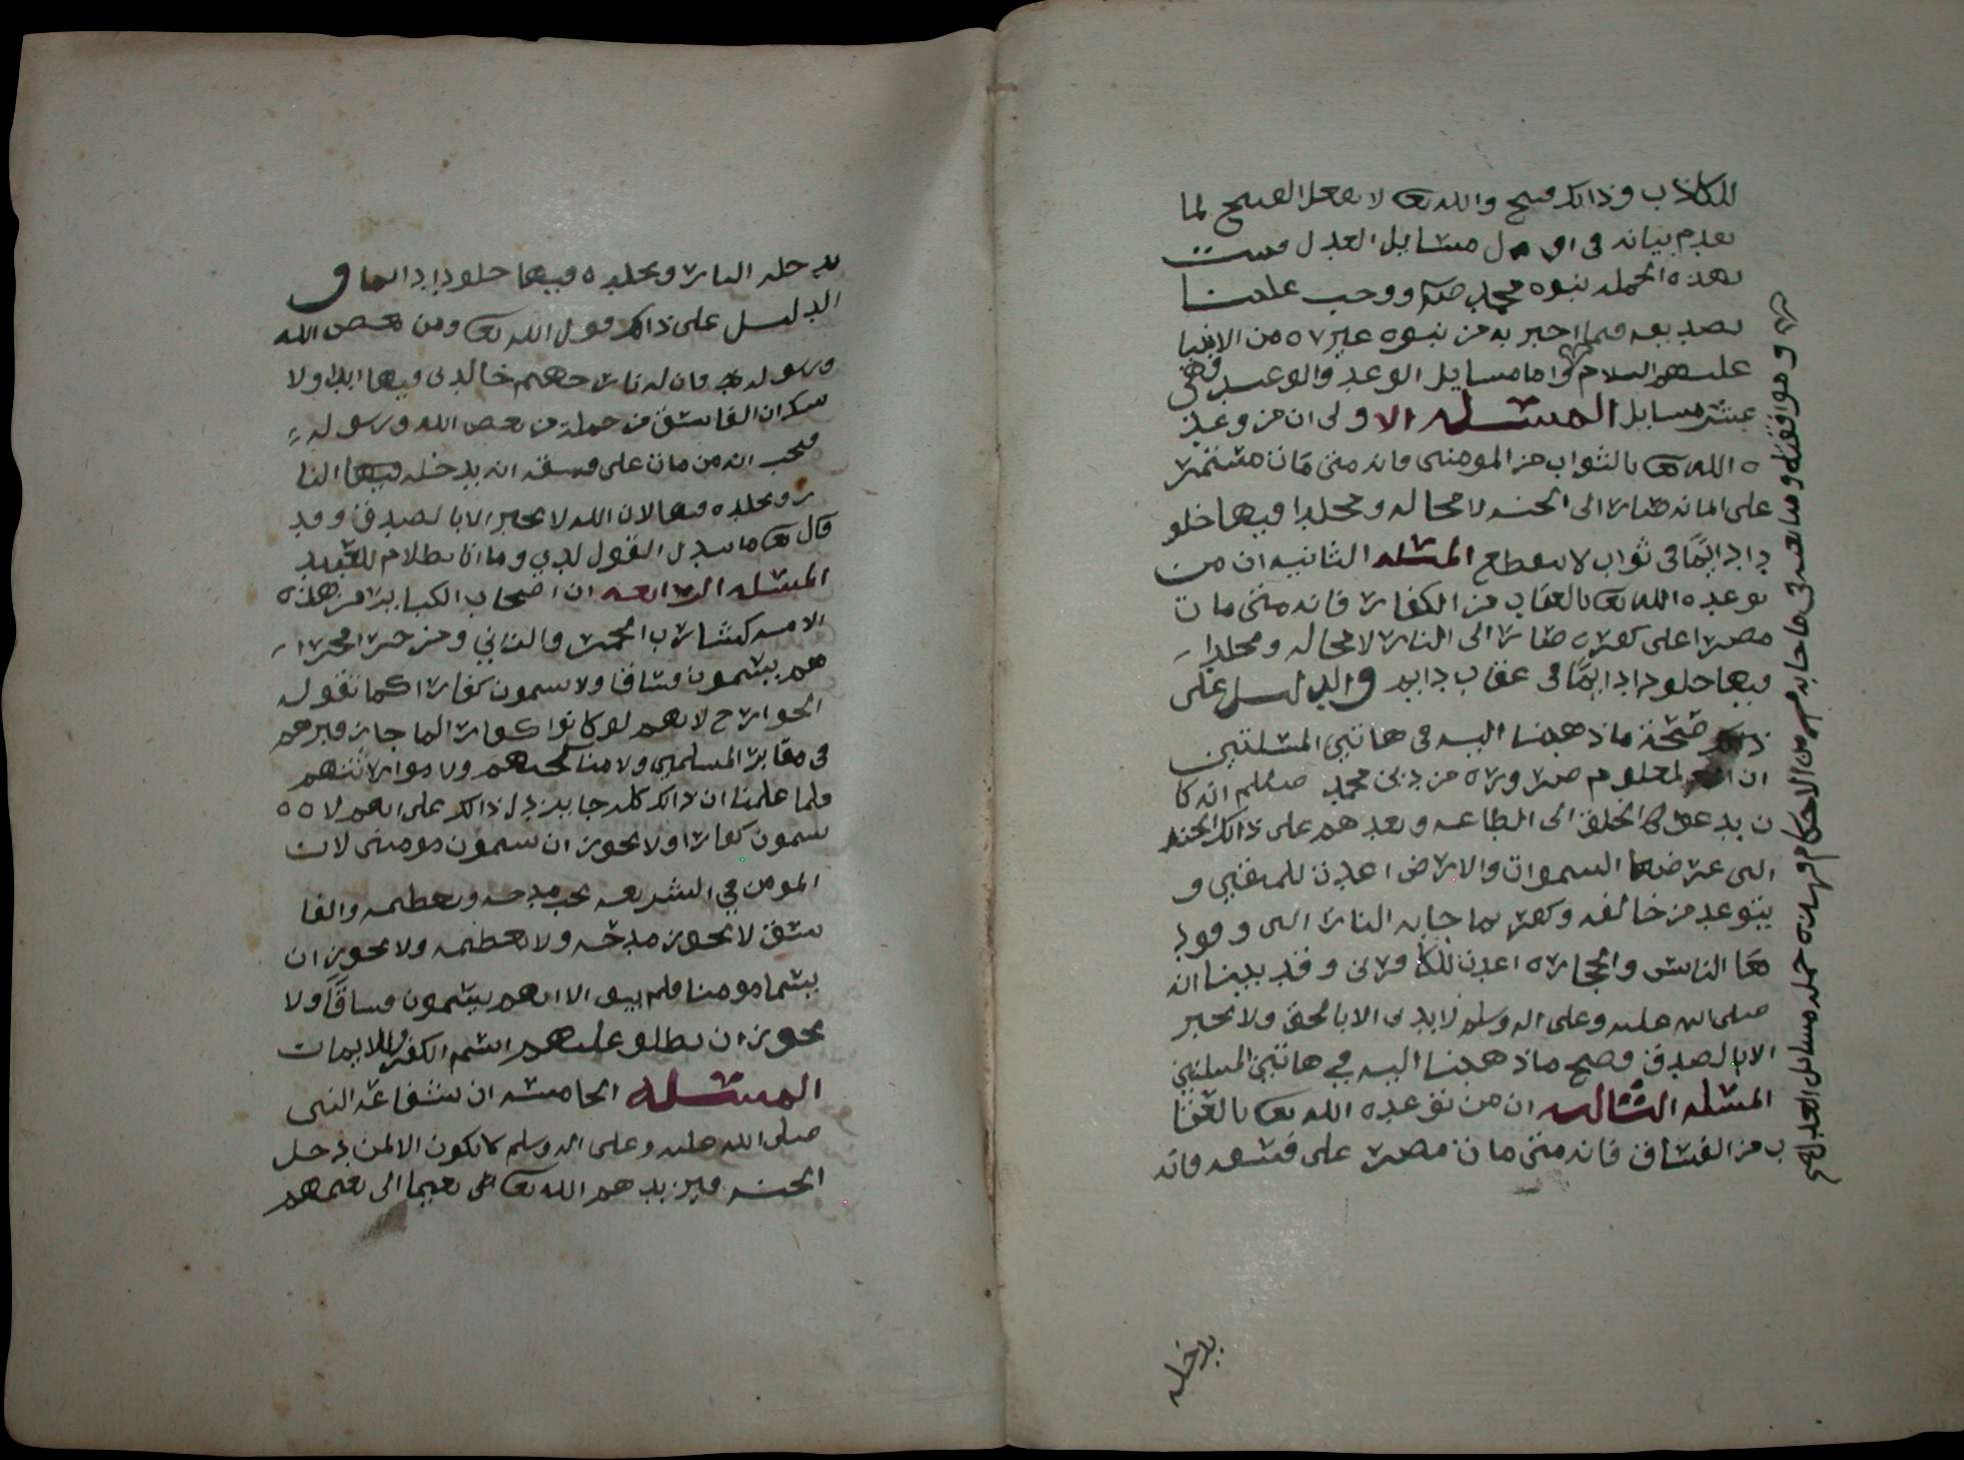 للكاذب وذالك قبيح والله تعا لا يفعل القبيح لما
تقدم بيانه في اول مسايل العدل فثبت
بهذه الجمله نبوه محمد صلعم ووجب علينا
تصديقه فيما اخبر به من نبوه غيره من الانبيا
عليهم السلام واما مسايل الوعد والوعيد فهي
عشر مسايل المسئله الاولى ان من وعد
ه الله تعا بالثواب من المومنين فانه متى مات مستمر
على ايمانه صار الى الجنه لا محاله ومخلدا فيها خلو
دا دايمًا في ثواب لا ينقطع المسئله الثانيه ان من
توعده الله تعا بالعقاب من الكفار فانه متى مات
مصرا على كفره صار الى النار لا محاله ومخلدا
فيها خلودا دايمًا في عقاب دايم والدليل على
ذالك صحة ما ذهبنا اليه في هاتين المسئلتين
ان المعلوم ضروره من دين محمد صلعلم انه كا
ن يدعوا الخلق الى الطاعه ويعدهم على ذالك الجنه
التي عرضها السموات والارض اعدت للمتقين و
يتوعد من خالفه وكفر بما جا به النار التي وقود
ها الناس والحجاره اعدت للكافرين وقد بينا انه
صلى الله عليه وعلى اله وسلم لا يدين الا بالحق ولا يخبر
الا بالصدق فصح ما ذهبنا اليه في هاتين المسلتين
المسئله الثالثه ان من توعده الله تعا بالعقا
ب من الفساق فانه متى مات مصر على فسقه فانه
وموافقه وما العبد في ما جا به من الاحكام فهذه جمله مسائل العدل
يدخله
يدخله النار ويخلده فيها خلودا دايما و
الدليل على ذالك قول الله تعا ومن يعص الله
ورسوله فان له نار جهنم خالدين فيها ابدا ولا
شك ان الفاسق من جملة من يعص الله ورسوله
فيجب ان من مات على فسقه ان يدخله فيها النا
ر ويخلده فيها لان الله لا يخبر الا بالصدق وقد
قال تعا ما يبدل القول لدي وما انا بظلام للعبيد
المسئله الرابعه ان اصحاب الكباير من هذه
الامه كشارب الخمر والزاني ومن جرا مجرا
هم يسمون فساقا ولا يسمون كفارا كما تقول
الخوارج لانهم لو كانوا كفارا لما جاز قبرهم
في مقابر المسلمين ولا مناكحتهم ولا موارثتهم
فلما علمنا ان ذالك كله جايز دل ذالك على انهم لا
يسمون كفارا ولا يجوز ان يسمون مومنين لان
المومن في الشريعه يجب مدحه وتعظيمه والفا
سق لا يجوز مدحه ولا تعظيمه ولا يجوز ان
يسما مومنا فلم يبق الا انهم يسمون فساقًا ولا
يجوز ان يطلق عليهم اسم الكفر والايمان
المسئله الخامسه ان شفاعة النبي
صلى الله عليه وعلى اله وسلم لا تكون الا لمن دخل
الجنه فيزيدهم الله تعا نعيما الى نعيمهم